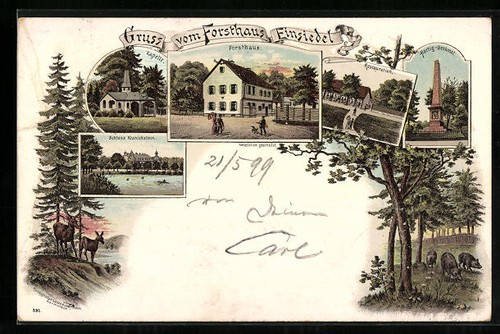 Gruss vom Forsthaus Einsiedel
Capelle
Forsthaus.
Restauration.
Hartig-Denkmal.
Schloss Kranichstein.
21/5 99
von Deinem
Carl
591